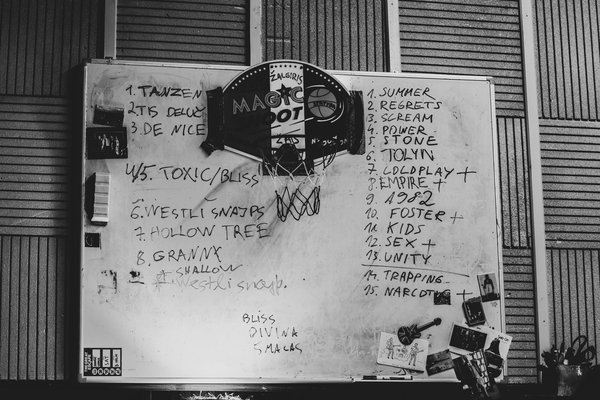 1. TANZEN
2. TIS DELUŽ
3. DE NICE
4/5. TOXIC/BLISS
6. WESTLI SNAJPS
7. HOLLOW TREE
8. GRANNX
SHALLOW
Westli snajp.
BLISS
DIVINA
SMACAS
ŽALGIRIS
MAGIC
1. SUMMER
2. REGRETS
3. SCREAM
4. POWER
5. STONE
6. TOLYN
7. COLDPLAY +
8. EMPIRE +
9. 1982
10. FOSTER +
11. KIDS
12. SEX +
13. UNITY
14. TRAPPING
15. NARCOTIC +